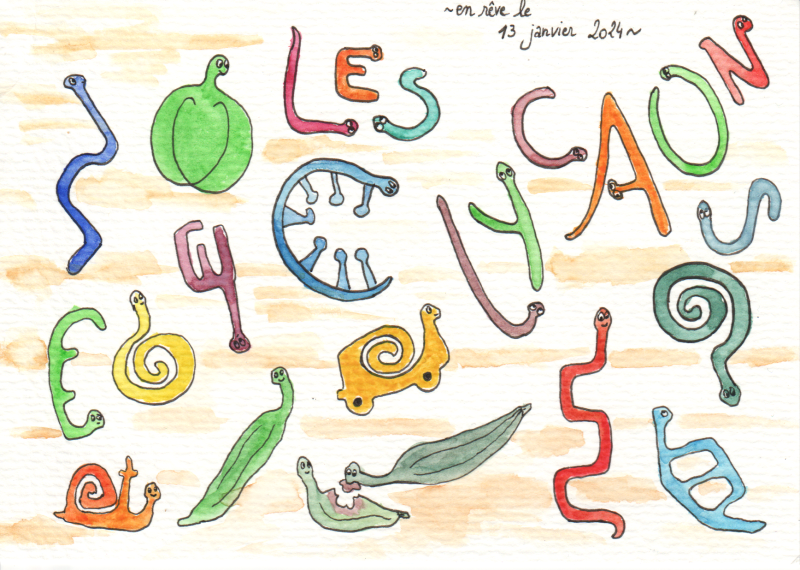 ~en rêve le
13 janvier 2024~
LES
LYCAONS
et